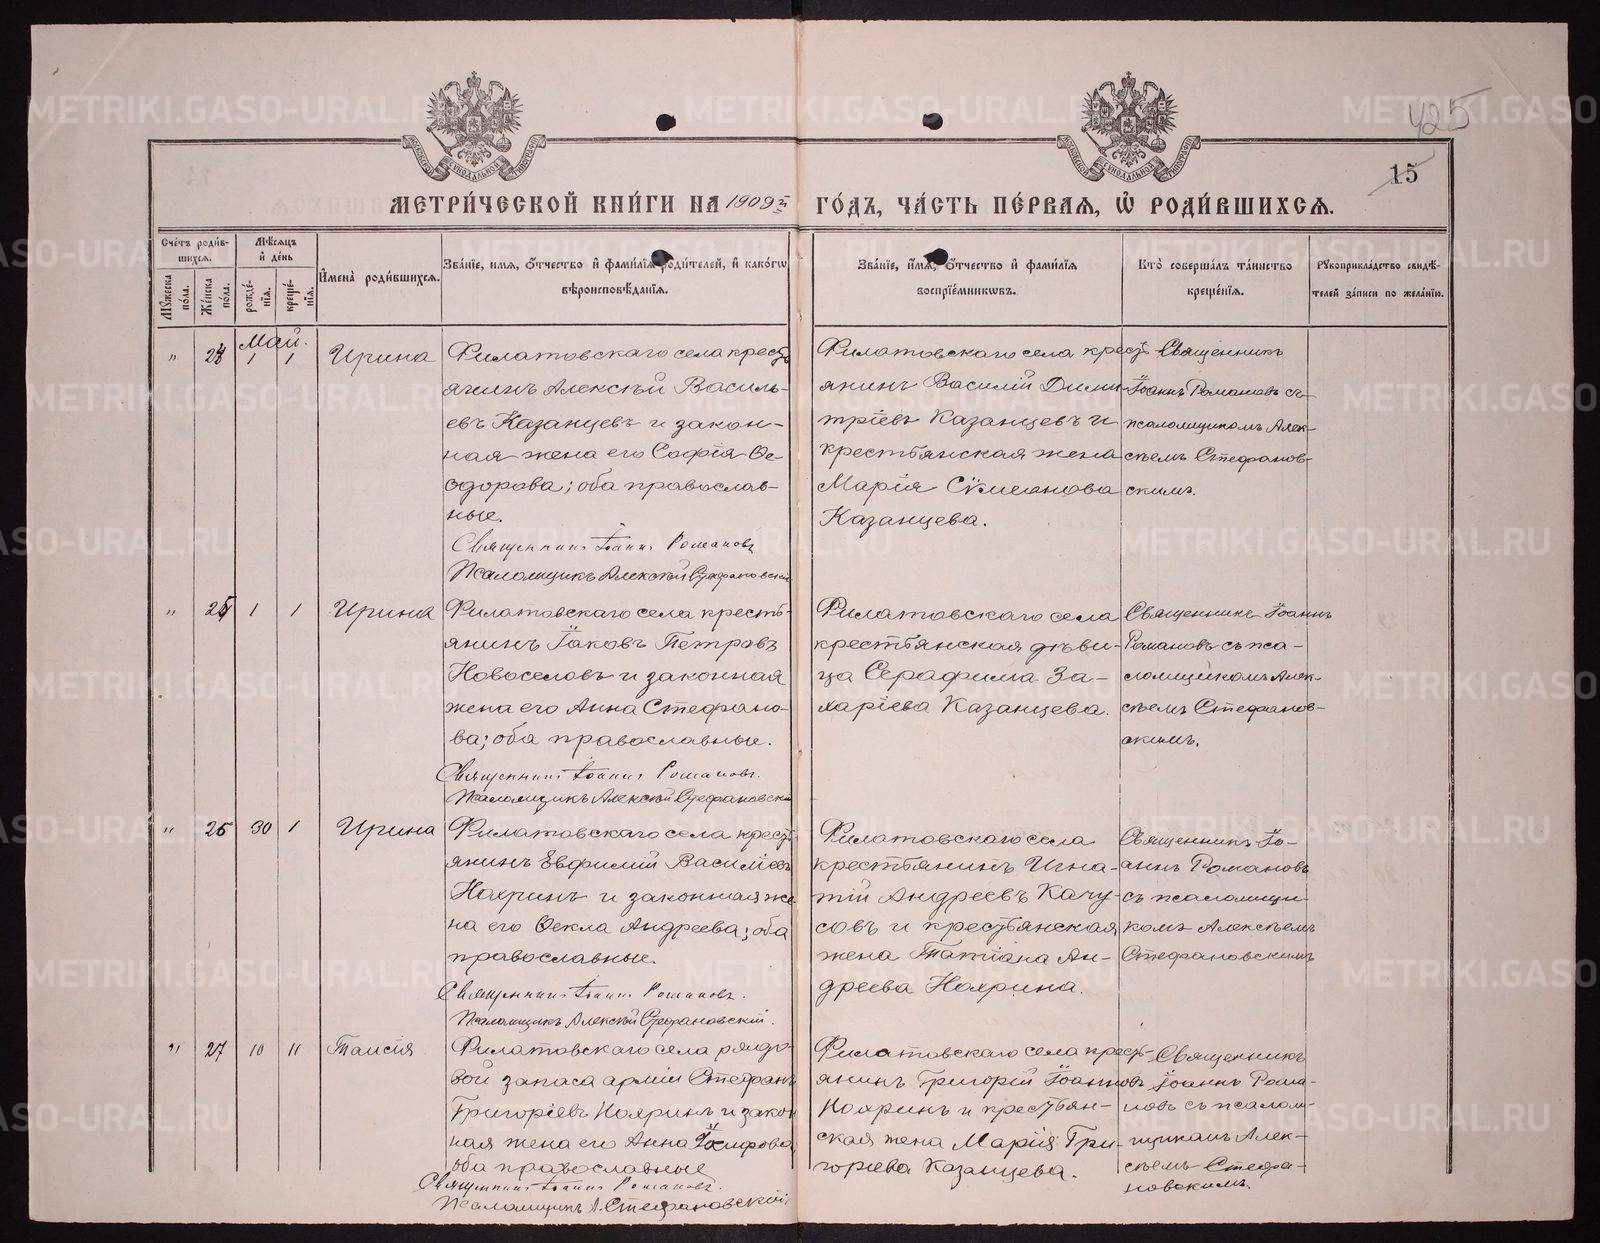 425
15
МЕТРИ́ЧЕСКОЙ КНИ́ГИ НА 1909й ГО́ДЪ, ЧА́СТЬ ПЕ́РВАЯ, Ѡ҆ РОДИ́ВШИХСЯ.
Сче́тъ роди́вшихся.
Му́жеска по́ла.
Же́нска по́ла.
Мѣ́сяцъ и҆ де́нь
рожде́нїя.
креще́нїя.
И҆мена̀ роди́вшихся.
Зва́нїе, и҆мя, ѻ҆́тчество и҆ фами́лїя роди́телей, и҆ како́гѡ
вѣроисповѣ́данїя.
Зва́нїе, и҆́мя, ѻ҆́тчество и҆ фами́лїя
воспрїе́мникѡвъ.
Кто̀ соверша́лъ та́инство
креще́нїя.
Рꙋкоприкла́дство свидѣ́-
телей за́писи по жела́нїю.
Май.
" 24 1 1 Ирина
Филатовскаго села кресть
янинъ Алексѣй Василь-
евъ Казанцевъ и закон-
ная жена его Софія Ѳе-
одорова; оба православ-
ные.
Священникъ Іоаннъ Романовъ
Псаломщикъ Алексѣй Стефановскій
Филатовскаго села крест
янинъ Василій Дими-
тріевъ Казанцевъ и
крестьянская жена
Марія Сѵмеонова
Казанцева.
Священникъ
Іоаннъ Романовъ съ
псаломщикомъ Алек-
сѣемъ Стефанов-
скимъ.
" 25 1 1 Ирина
Филатовскаго села кресть-
янинъ Іаковъ Петровъ
Новоселовъ и законная
жена его Анна Стефано-
ва; оба православные.
Священникъ Іоаннъ Романовъ.
Псаломщикъ Алексѣй Стефановскій
Филатовскаго села
крестьянская дѣви-
ца Серафима За-
харіева Казанцева.
Священникъ Іоаннъ
Романовъ съ пса-
ломщикомъ Алек-
сѣемъ Стефанов-
скимъ.
" 26 30 1 Ирина
Филатовскаго села кресть
янинъ Евфимій Василіевъ
Нояринъ и законная же
на его Ѳекла Андреева; оба
православные.
Священникъ Іоаннъ Романовъ.
Псаломщикъ Алексѣй Стефановскій.
Филатовскаго села
крестьянинъ Игна-
тій Андреевъ Качу-
совъ и крестьянская
жена Татіана Ан-
дреева Ноярина.
Священникъ Іо-
аннъ Романовъ
съ псаломщи-
комъ Алексѣемъ
Стефановскимъ
" 27 10 11 Таисія
Филатовскаго села рядо-
вой запаса арміи Стефанъ
Григоріевъ Нояринъ и закон
ная жена его Анна Іосифова
оба православные
Священникъ Іоаннъ Романовъ.
Псаломщикъ А. Стефановскій
Филатовскаго села кресть-
янинъ Григорій Іоанновъ
Нояринъ и крестьян-
ская жена Марія Гри-
горіева Казанцева.
Священникъ
Іоаннъ Рома-
новъ съ псалом-
щикомъ Алек-
сѣемъ Стефа-
новскимъ.
METRIKI.GASO-URAL.RU